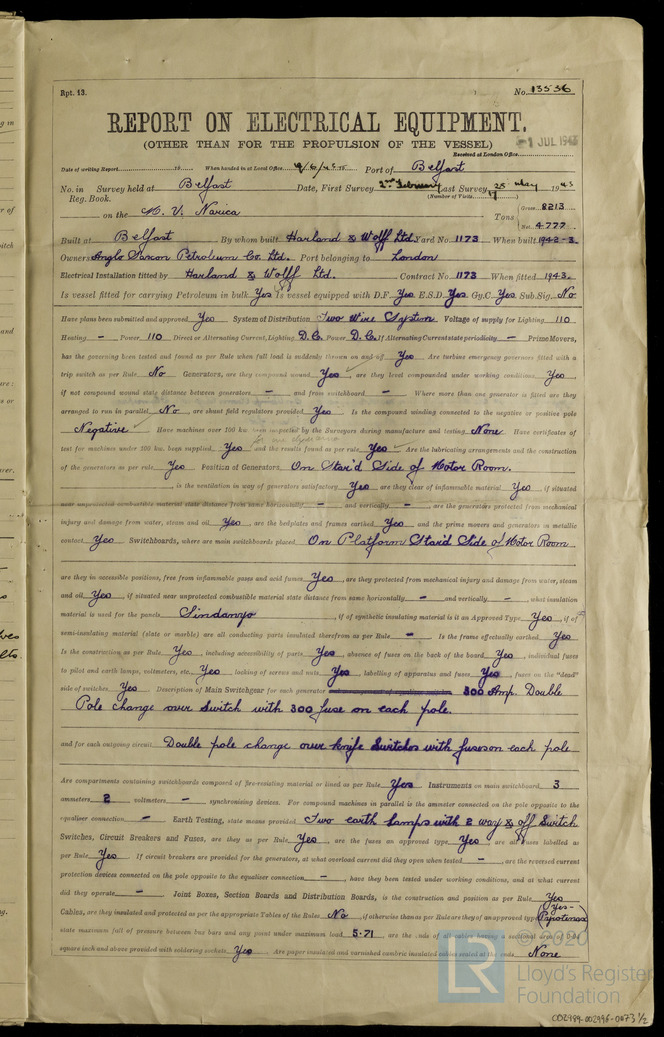 Rpt. 13. No. 13536
REPORT ON ELECTRICAL EQUIPMENT.
(OTHER THAN FOR THE PROPULSION OF THE VESSEL)
-1 JUL 1943
Received at London Office
Date of writing Report 19 When handed in at Local Office 4/6/1943 Port of Belfast
No. in Survey held at Belfast Date, First Survey 2nd February Last Survey 25 May 1943
Reg. Book. (Number of Visits 17)
on the M. V. Narica Tons Gross 8213
Net 4777
Built at Belfast By whom built Harland & Wolff Ltd. Yard No. 1173 When built 1942-3.
Owners Anglo Saxon Petroleum Co. Ltd. Port belonging to London
Electrical Installation fitted by Harland & Wolff Ltd. Contract No. 1173 When fitted 1943.
Is vessel fitted for carrying Petroleum in bulk Yes Is vessel equipped with D.F. Yes E.S.D. Yes Gy.C. Yes Sub.Sig. No
Have plans been submitted and approved Yes System of Distribution Two Wire System Voltage of supply for Lighting 110
Heating - Power 110 Direct or Alternating Current, Lighting D.C. Power D.C. If Alternating Current state periodicity - Prime Movers,
has the governing been tested and found as per Rule when full load is suddenly thrown on and off Yes Are turbine emergency governors fitted with a
trip switch as per Rule No Generators, are they compound wound Yes, are they level compounded under working conditions Yes
if not compound wound state distance between generators - and from switchboard - Where more than one generator is fitted are they
arranged to run in parallel No, are shunt field regulators provided Yes Is the compound winding connected to the negative or positive pole
Negative Have machines over 100 kw. been inspected by the Surveyors during manufacture and testing None Have certificates of
test for machines under 100 kw. been supplied Yes and the results found as per rule Yes Are the lubricating arrangements and the construction
of the generators as per rule Yes Position of Generators On Star'd Side of Motor Room.
is the ventilation in way of generators satisfactory Yes are they clear of inflammable material Yes if situated
near unprotected combustible material state distance from same horizontally - and vertically -, are the generators protected from mechanical
injury and damage from water, steam and oil Yes, are the bedplates and frames earthed Yes and the prime movers and generators in metallic
contact Yes Switchboards, where are main switchboards placed On Platform Star'd Side of Motor Room
are they in accessible positions, free from inflammable gases and acid fumes Yes, are they protected from mechanical injury and damage from water, steam
and oil Yes, if situated near unprotected combustible material state distance from same horizontally - and vertically -, what insulation
material is used for the panels Sindanyo, if of synthetic insulating material is it an Approved Type Yes, if of
semi-insulating material (slate or marble) are all conducting parts insulated therefrom as per Rule - Is the frame effectually earthed Yes
Is the construction as per Rule Yes, including accessibility of parts Yes, absence of fuses on the back of the board Yes, individual fuses
to pilot and earth lamps, voltmeters, etc. Yes, locking of screws and nuts Yes, labelling of apparatus and fuses Yes, fuses on the "dead"
side of switches Yes Description of Main Switchgear for each generator 300 Amp. Double
Pole change over Switch with 300 fuse on each pole.
and for each outgoing circuit Double pole change over knife Switches with fuses on each pole
Are compartments containing switchboards composed of fire-resisting material or lined as per Rule Yes Instruments on main switchboard 3
ammeters 2 voltmeters - synchronising devices. For compound machines in parallel is the ammeter connected on the pole opposite to the
equaliser connection - Earth Testing, state means provided Two earth lamps with 2 way & off Switch
Switches, Circuit Breakers and Fuses, are they as per Rule Yes, are the fuses an approved type Yes are all fuses labelled as
per Rule Yes If circuit breakers are provided for the generators, at what overload current did they open when tested -, are the reversed current
protection devices connected on the pole opposite to the equaliser connection -, have they been tested under working conditions, and at what current
did they operate - Joint Boxes, Section Boards and Distribution Boards, is the construction and position as per Rule Yes
Cables, are they insulated and protected as per the appropriate Tables of the Rules No, if otherwise than as per Rule are they of an approved type Yes-
state maximum fall of pressure between bus bars and any point under maximum load 5.71, are the ends of all cables having a sectional area of
square inch and above provided with soldering sockets Yes Are paper insulated and varnished cambric insulated cables sealed at the ends None
LR
© 2020
Lloyd's Register
Foundation
002989-002996-0073 1/2